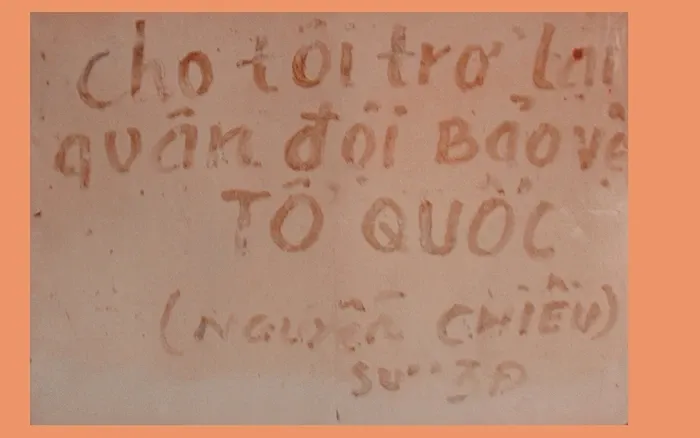 cho tôi trơ lại
quân đội Bảo vệ
TỔ QUỐC
(NGUYỄN CHIẾU)
SƯ 3D